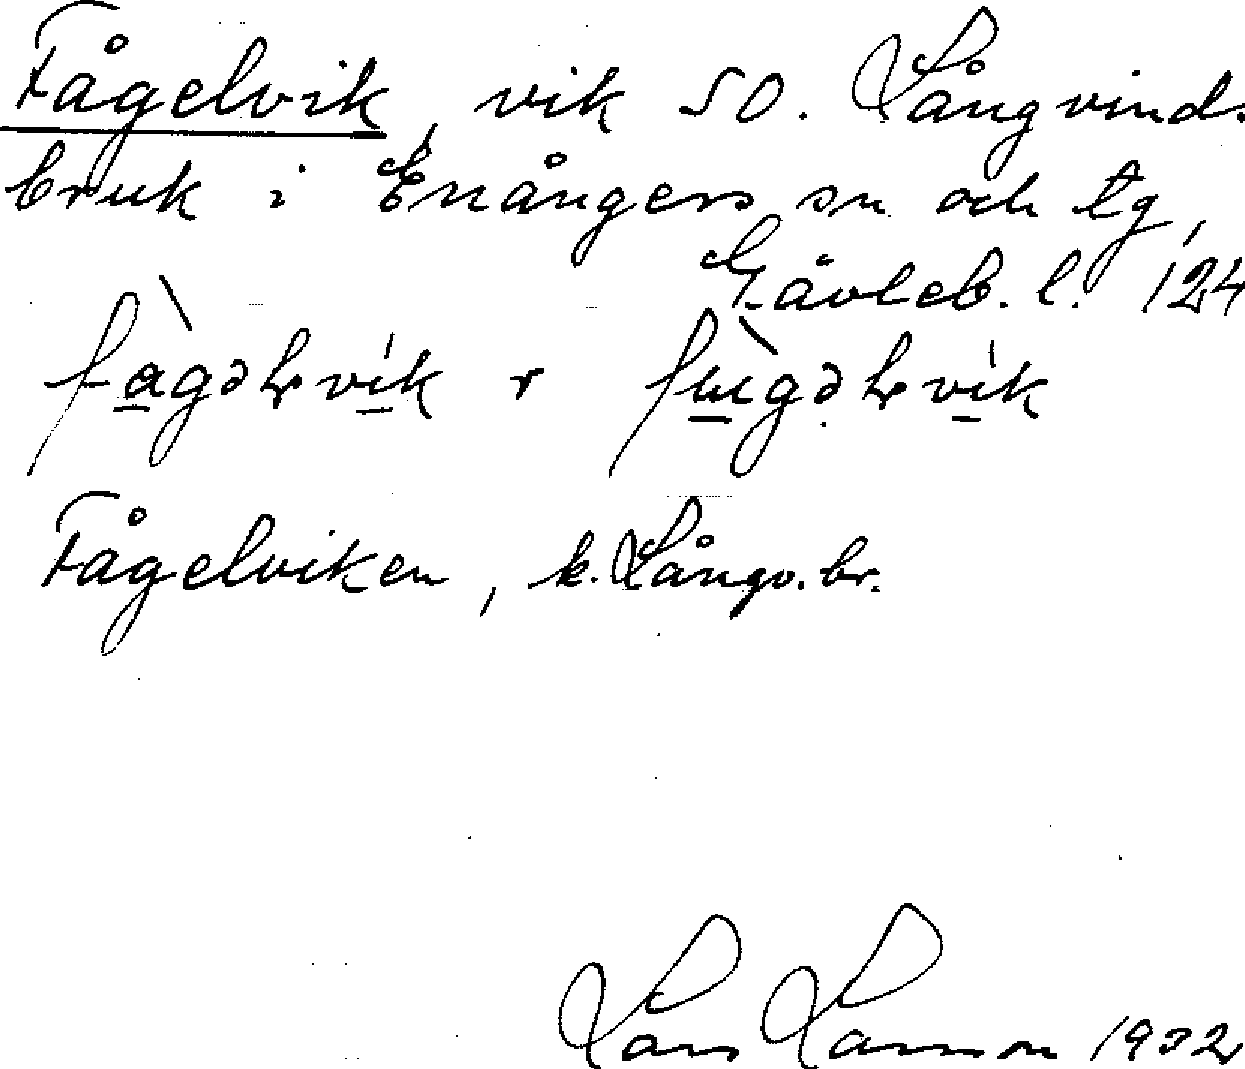 Fågelvik, vik SO. Långvinds
bruk i Enångers sn och tg,
Gävleb. l. 124
Fågelviken, k. Långv. br.
Lars Larsson 1932